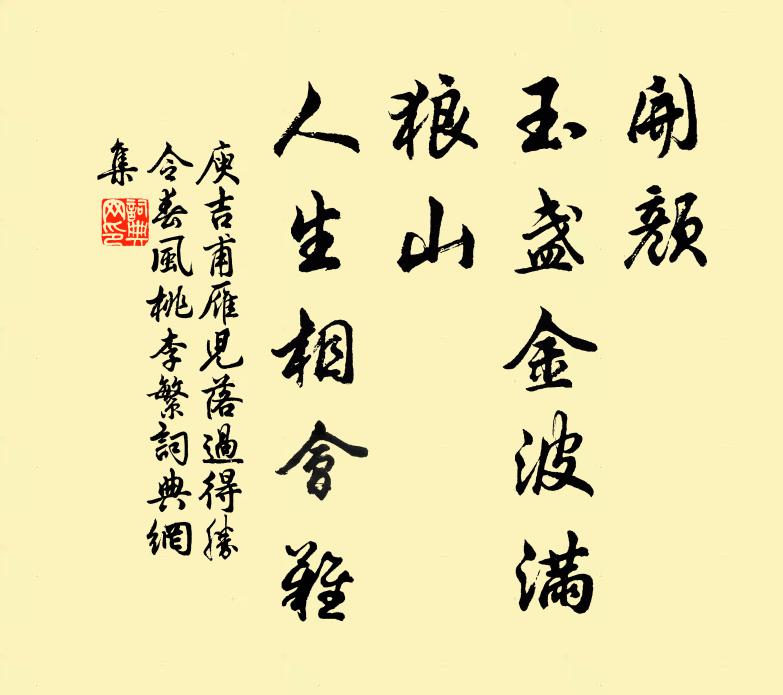 開顏
玉盞金波滿
狼山
人生相會難
庾吉甫雁兒落過得勝
令春風桃李繁詞典網
集
詞典
网印